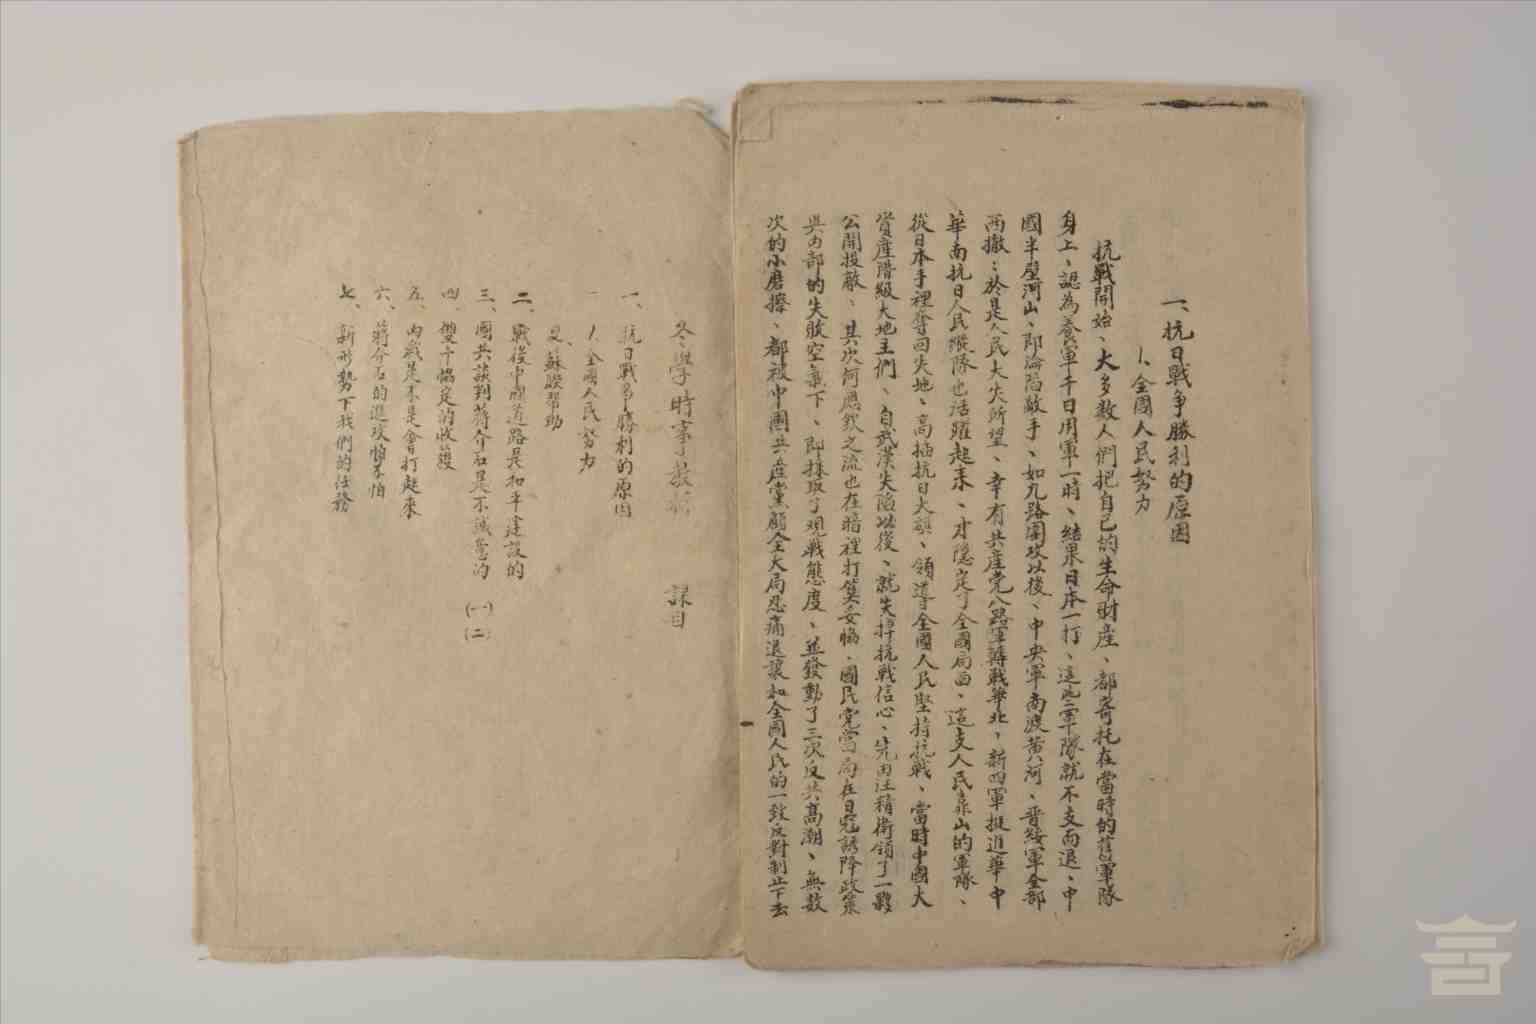 一、抗日戰争勝利的原因
1、全國人民努力
抗戰開始、大多数人們把自己的生命財産、都寄托在當時的舊軍隊
身上、認為養軍千日用軍一時、結果日本一打、這些軍隊就不支而退、中
國半壁河山、即淪陷敵手、如九路圍攻以後、中央軍南渡黄河、晋綏軍全部
西撤：於是人民大失所望、幸有共產党八路軍轉戰華北、新四軍挺進華中
華南抗日人民縱隊也活躍起來、才隱定了全國局面、這支人民靠山的軍隊、
從日本手裡奪回失地、高插抗日大旗、領導全國人民坚持抗戰、當時中國大
資產階級大地主們、自武漢失陷以後、就失掉抗戰信心、先由汪精衛領了一夥
公開投敵、其次何應欽之流也在暗裡打算妥協、國民党當局在日寇誘降政策
與内部的失敗空氣下、即採取了观戰態度、並發動了三次反共高潮、無数
次的小磨擦、都被中國共產黨顧全大局忍痛退讓和全國人民的一致反對制止下去
冬學時事教材 課目
一、抗日戰爭勝利的原因
1、全國人民努力
2、蘇聯帮助
二、戰後中國道路是和平建設的
三、國共談判蔣介石是不誠意的 (一)(二)
四、雙十協定的收獲
五、内戰是不是會打起來
六、蔣介石的進攻怕不怕
七、新形勢下我們的任務